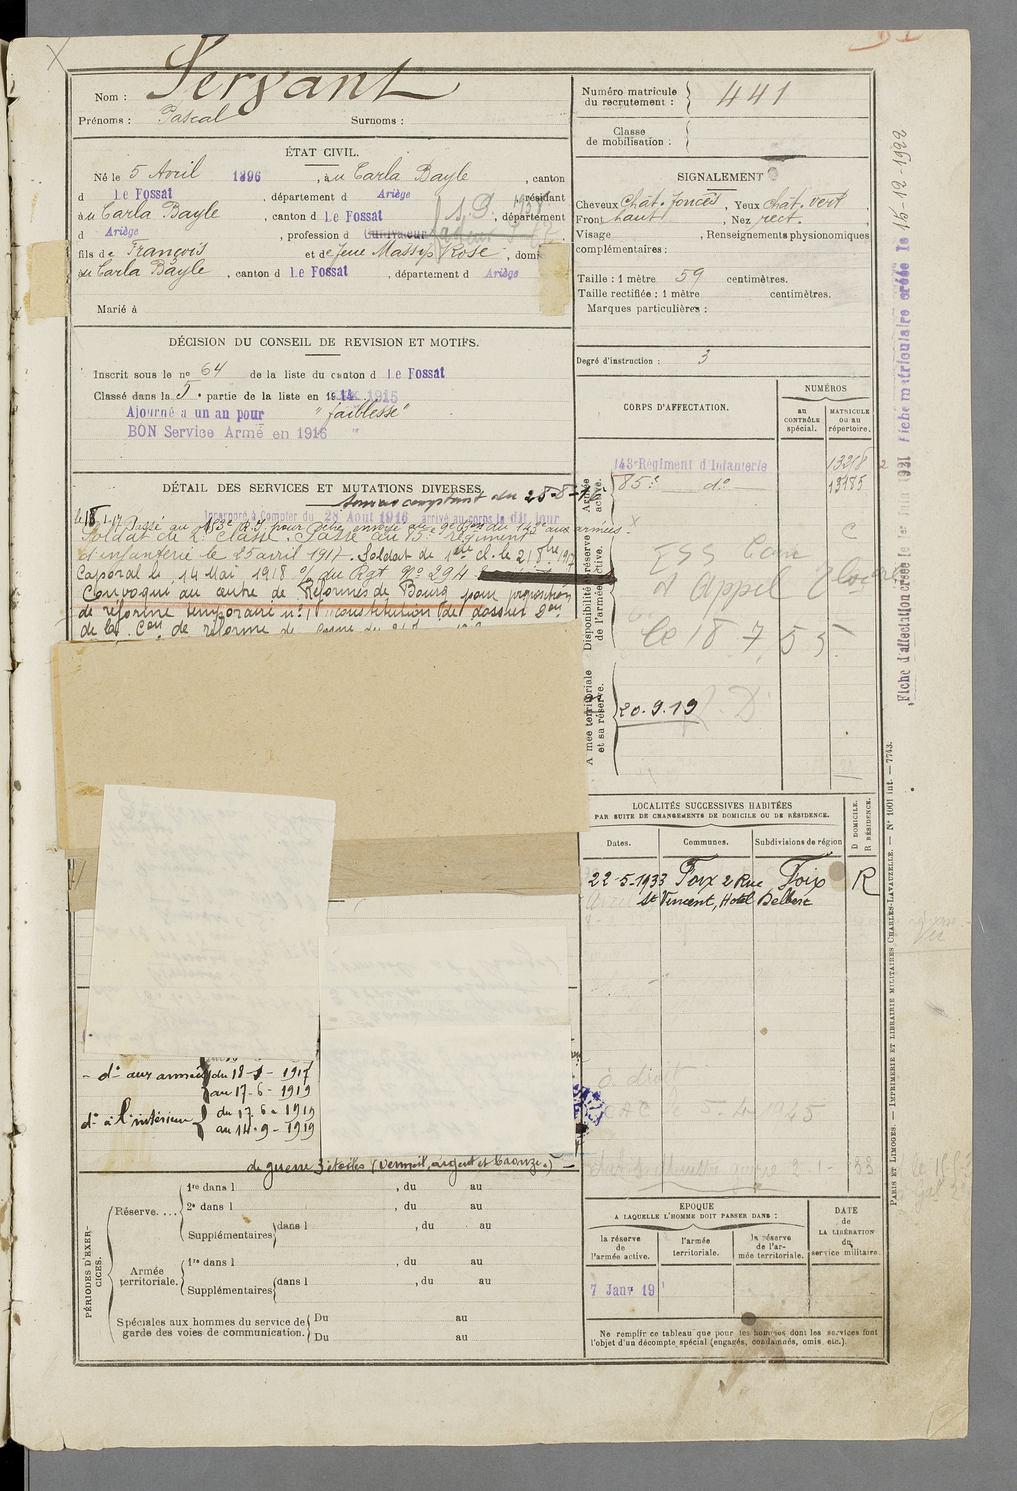 Nom : Servant
Prénoms : Pascal Surnoms :
ÉTAT CIVIL.
Né le 5 Avril 1896, à u Carla Bayle, canton
d Le Fossat, département d Ariège, résidant
à u Carla Bayle, canton d Le Fossat, département
d Ariège, profession d Cultivateur
fils de François et de feue Massip Rose, domi
au Carla Bayle, canton d Le Fossat, département d Ariège
Marié à
DÉCISION DU CONSEIL DE REVISION ET MOTIFS.
Inscrit sous le nº 64 de la liste du canton d Le Fossat
Classé dans la 5e partie de la liste en 1915
Ajourné à un an pour "faiblesse"
BON Service Armé en 1916 "
DÉTAIL DES SERVICES ET MUTATIONS DIVERSES.
comptant du 28-8-16
Incorporé à Compter du 28 Aout 1916 arrivé au corps le dit jour
Soldat de 2e classe. Passé au 85e régiment
d'infanterie le 25 avril 1917. Soldat de 1ère cl. le 21 8bre 1917
Caporal le 14 Mai 1918 o/ du Rgt Nº 294
Convoqué au centre de Réformes de Bourg pour proposition
de réforme temporaire nº 1 (constitution de dossier
de la Con de réforme de
- dº aux armées du 18-1-1917
au 17-6-1919
dº à l'intérieur du 17-6-1919
au 14-9-1919
de guerre 3 étoiles (vermeil, argent et bronze.) -
PÉRIODES D'EXERCICES.
Réserve.... 1re dans l , du au
2e dans l , du au
Supplémentaires dans l , du au
Armée territoriale. 1re dans l , du au
Supplémentaires dans l , du au
Spéciales aux hommes du service de garde des voies de communication. Du au
Du au
Numéro matricule du recrutement : 441
Classe de mobilisation :
SIGNALEMENT
Cheveux Chât. foncés, Yeux chât. vert
Front haut, Nez rect.
Visage , Renseignements physionomiques
complémentaires :
Taille : 1 mètre 59 centimètres.
Taille rectifiée : 1 mètre centimètres.
Marques particulières :
Degré d'instruction : 3
CORPS D'AFFECTATION.
NUMÉROS
au CONTRÔLE spécial.
MATRICULE OU AU répertoire.
Armée active.
143e Régiment d'Infanterie 13218
85e dº 13185
Disponibilité et réserve de l'armée active.
d'Appel
le 18 7 55
Armée territoriale et sa réserve.
20.9.19
LOCALITÉS SUCCESSIVES HABITÉES
PAR SUITE DE CHANGEMENTS DE DOMICILE OU DE RÉSIDENCE.
Dates. Communes. Subdivisions de région
D DOMICILE. R RÉSIDENCE.
22-5-1933 Foix 2 Rue Foix R
St Vincent, Hotel Delberc
à droit
CAC le 5-4-1945
EPOQUE
A LAQUELLE L'HOMME DOIT PASSER DANS :
la réserve de l'armée active.
l'armée territoriale.
la réserve de l'armée territoriale.
DATE de LA LIBÉRATION du service militaire.
7 Janv 19
Ne remplir ce tableau que pour les hommes dont les services font
l'objet d'un décompte spécial (engagés, condamnés, omis, etc.).
Fiche d'affectation créée le 1er Juin 1921 Fiché matriculaire créée le 15-12-1922
PARIS ET LIMOGES. — IMPRIMERIE ET LIBRAIRIE MILITAIRES CHARLES-LAVAUZELLE. — Nº 1001 int. — 7743.